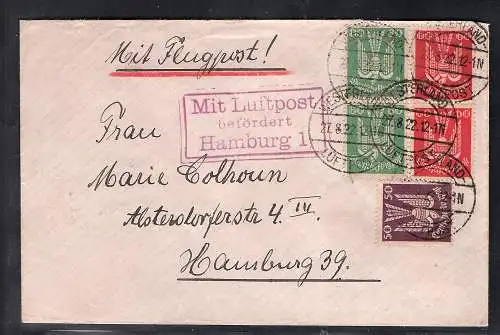 Mit Flugpost!
Mit Luftpost
befördert
Hamburg 1
Frau
Marie Colhoun
Alsterdorferstr 4 IV
Hamburg 39.
27.8.22.12-1N
50 50